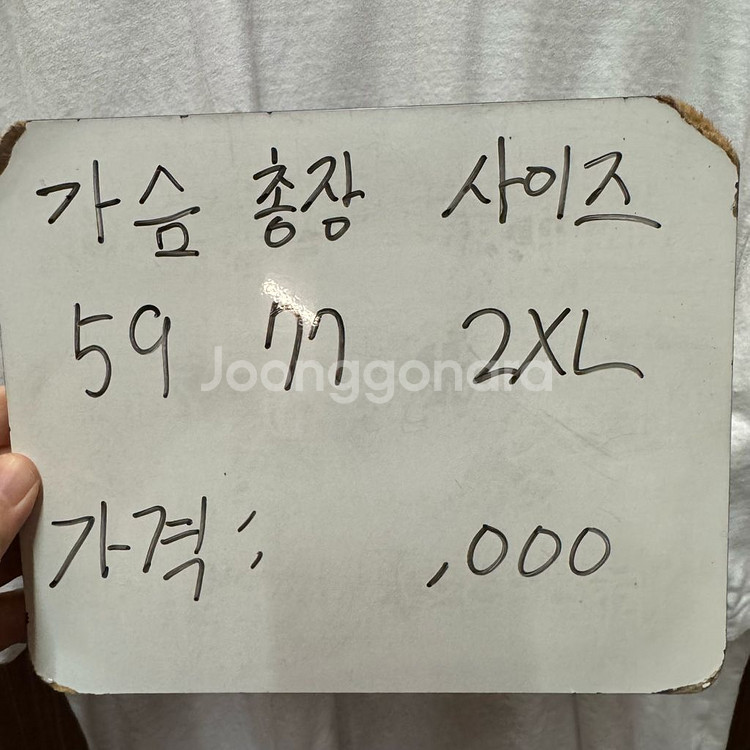 가슴 총장 사이즈
59 77 2XL
Joonggonara
가격: ,000